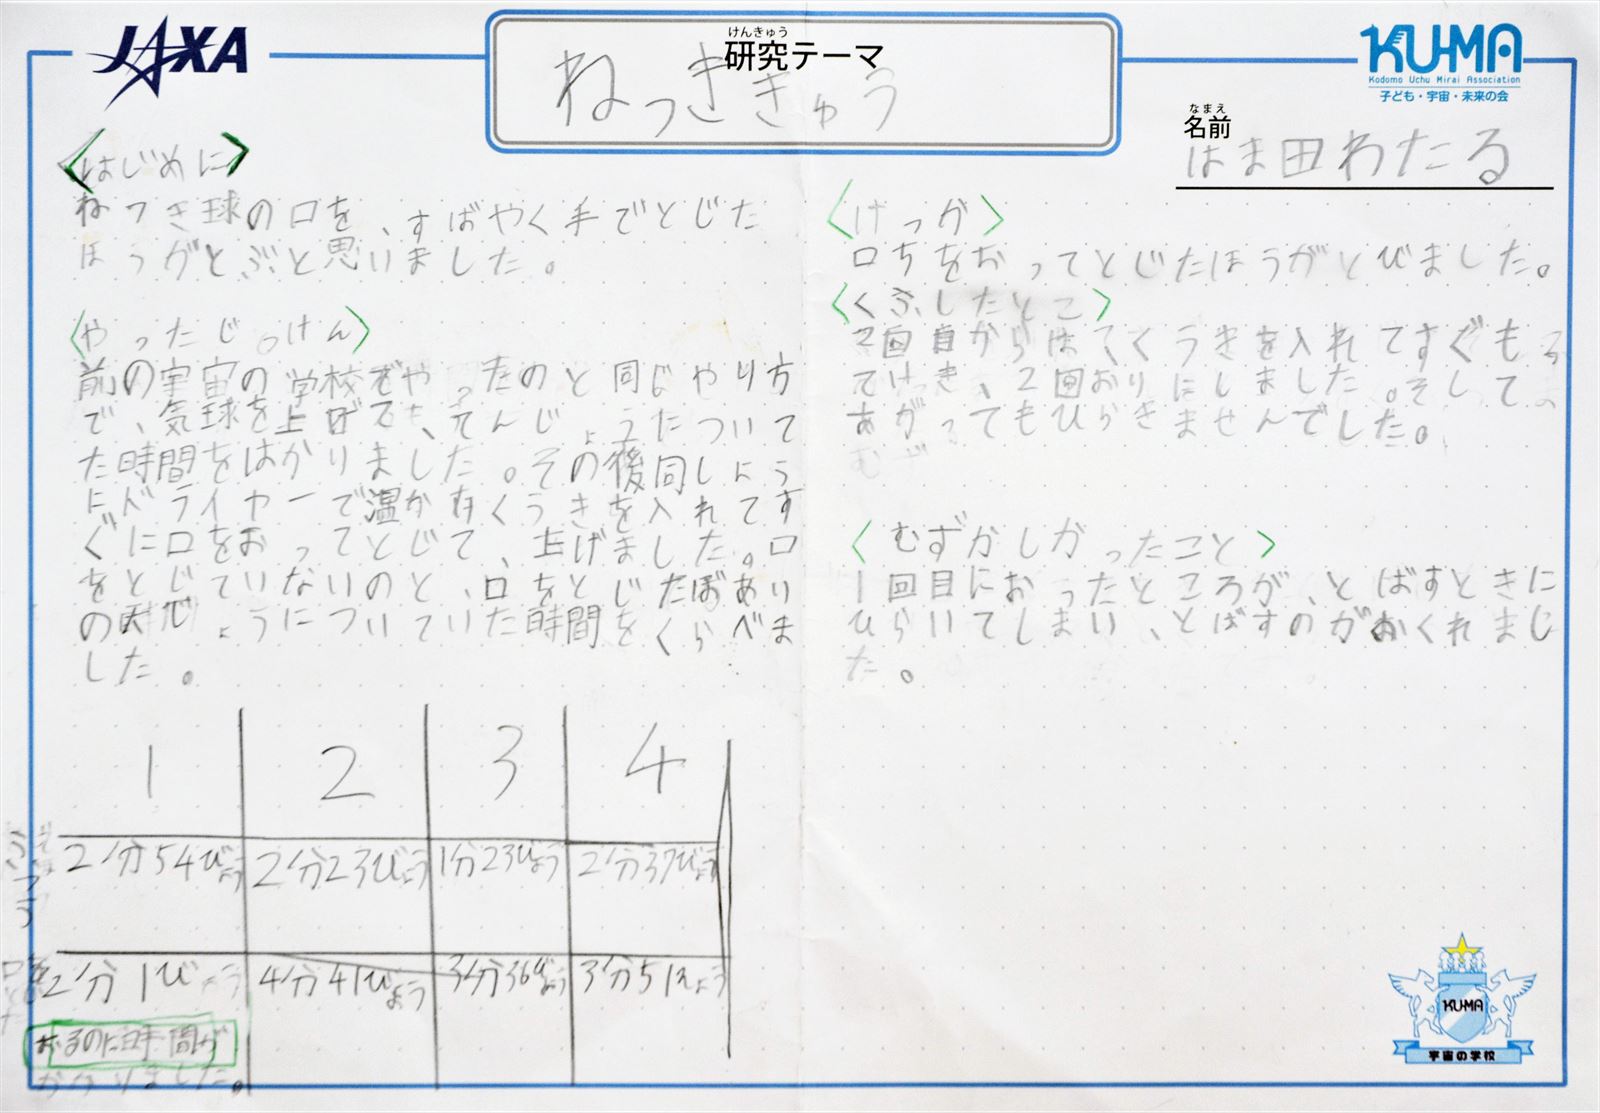 JAXA
けんきゅう
研究テーマ
ねっききゅう
KUMA
Kodomo Uchu Mirai Association
子ども・宇宙・未来の会
なまえ
名前
はま田わたる
〈はじめに〉
ねつき球の口を、すばやく手でとじた
ほうがとぶと思いました。
〈やったじっけん〉
前の宇宙の学校でやったのと同じやり方
で、気球を上げて、てんじょうたついて
た時間をはかりました。その後同しによう
にドライヤーで温かなくうきを入れてす
ぐに口をおってとじて、上げました。口
をとじていないのと、口をとじたばあい
の天じょうについていた時間をくらべま
した。
1 2 3 4
2分54びょう 2分23びょう 1分23びょう 2分37びょう
2分1びょう 4分41びょう 3分36びょう 3分51びょう
おるのに時間が
かかりました。
〈けっか〉
口ちをおってとじたほうがとびました。
〈くふうしたとこ〉
2回目からは、くうきを入れてすぐも
てけっき、2回おりにしました。そして
あがってもひらきませんでした。
〈むずかしかったこと〉
1回目におったところが、とばすときに
ひらいてしまい、とばすのがおくれまし
た。
KUMA
宇宙の学校